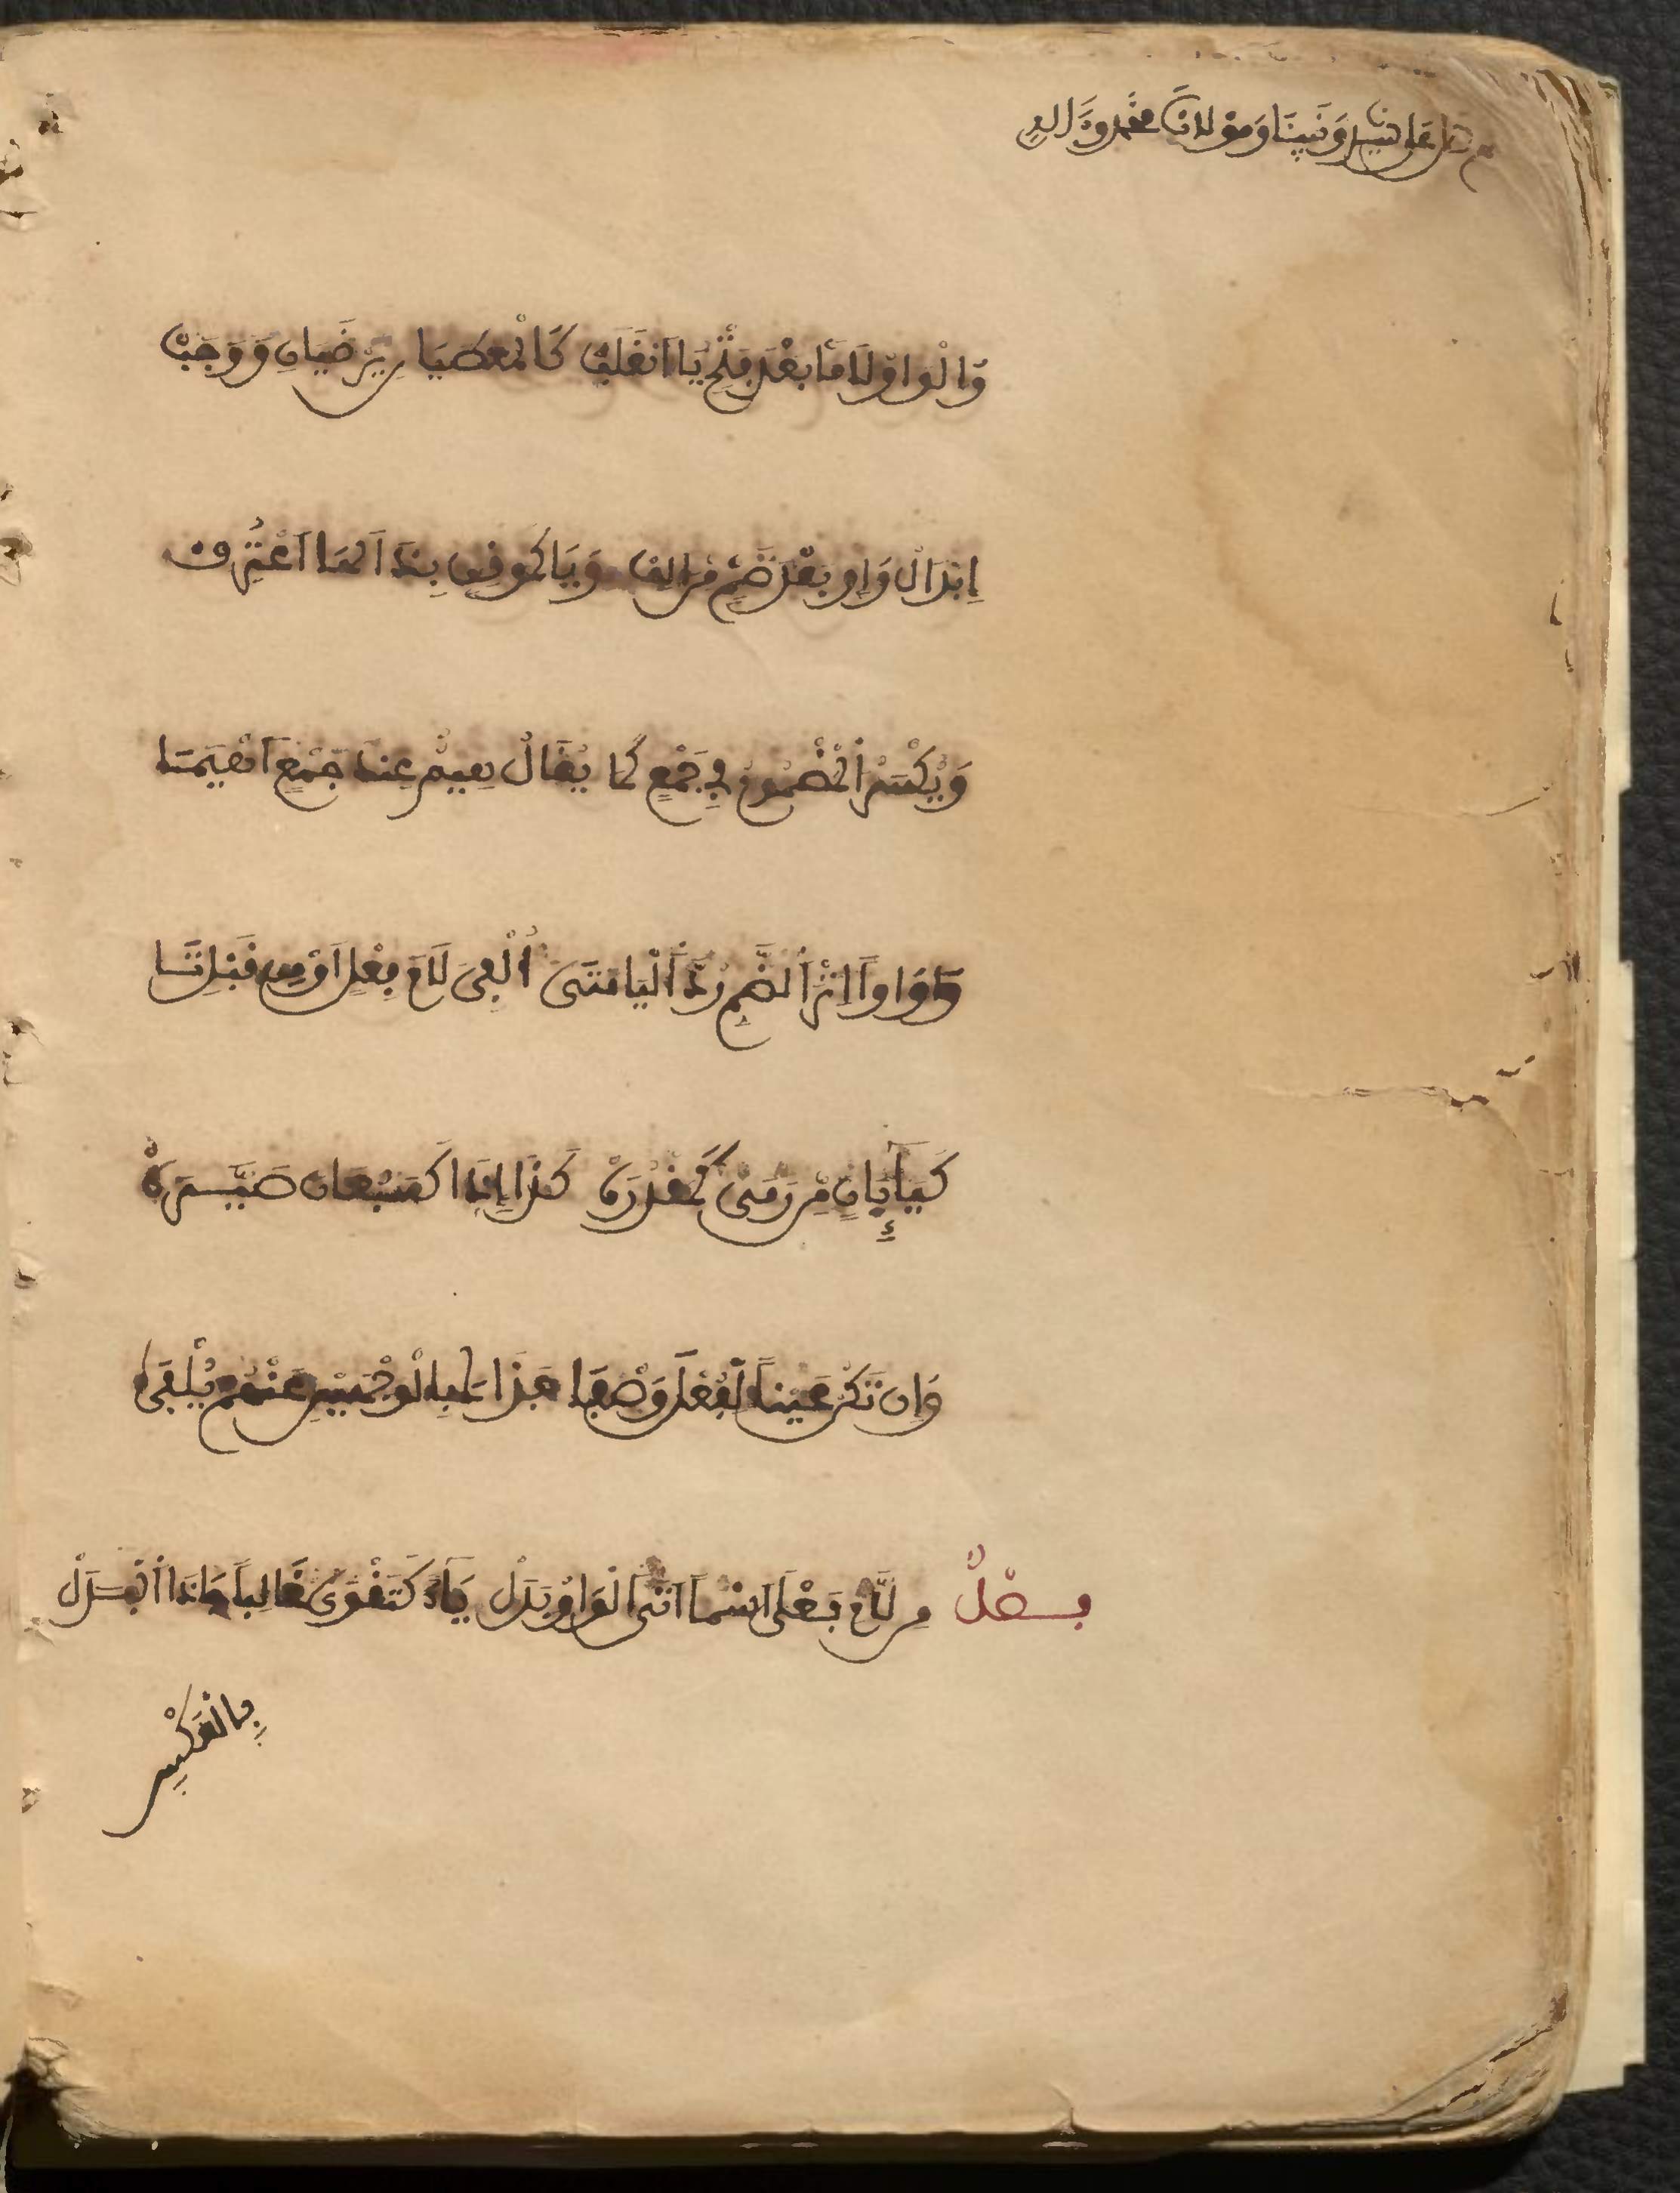 صل على سيدنا ونبينا ومولانا محمد وءاله
وَالْوَاوُ لَاماً بَعْدَ فَتْحٍ يَا انْقَلَبْ كَالْمُعْطَيَانِ يُرْضَيَانِ وَوَجَبْ
إِبْدَالُ وَاوٍ بَعْدَ ضَمٍّ مِنْ أَلِفْ وَيَا كَمُوقِنٍ بِذَا لَهَا اعْتُرِفْ
وَيُكْسَرُ الْمَضْمُومُ فِي جَمْعٍ كَمَا يُقَالُ هِيمٌ عِنْدَ جَمْعِ أَهْيَمَا
وَوَاواً إِثْرَ الضَّمِّ رُدَّ الْيَا مَتَى أُلْفِيَ لَامَ فِعْلٍ أَوْ مِنْ قَبْلِ تَا
كَتَاءِ بَانٍ مِنْ رَمَى كَمَقْدُرَهْ كَذَا إِذَا كَسَبُعَانَ صَيَّرَهْ
وَإِن تَكُنْ عَيْناً لِفُعْلَى وَصْفَا فَذَاكَ بِالْوَجْهَيْنِ عَنْهُمْ يُلْفَى
فصل مِن لَامِ فَعْلَى اسْماً أَتَى الْوَاوُ بَدَلْ يَاءٍ كَتَقْوَى غَالِباً جَا ذَا الْبَدَلْ
بالعكس